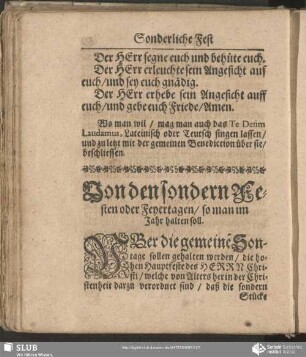 Sonderliche Fest
Der HErr segne euch und behüte euch.
Der HErr erleuchte sein Angesicht auf
euch/und sey euch gnädig.
Der HErr erhebe sein Angesicht auff
euch/und gebe euch Friede/Amen.
Wo man wil / mag man auch das Te Deum
Laudamus, Lateinisch oder Teutsch singen lassen/
und zu letzt mit der gemeinen Benediction über sie/
beschliessen.
Von den sondern Fe-
sten oder Feyertagen/so man im
Jahr halten soll.
Uber die gemeinē Son-
tage sollen gehalten werden/die ho-
hen Hauptfeste des HERRN Chri-
sti/welche von Alters her in der Chri-
stenheit darzu verordnet sind / daß die sondern
Stücke
SLUB
Wir führen Wissen.